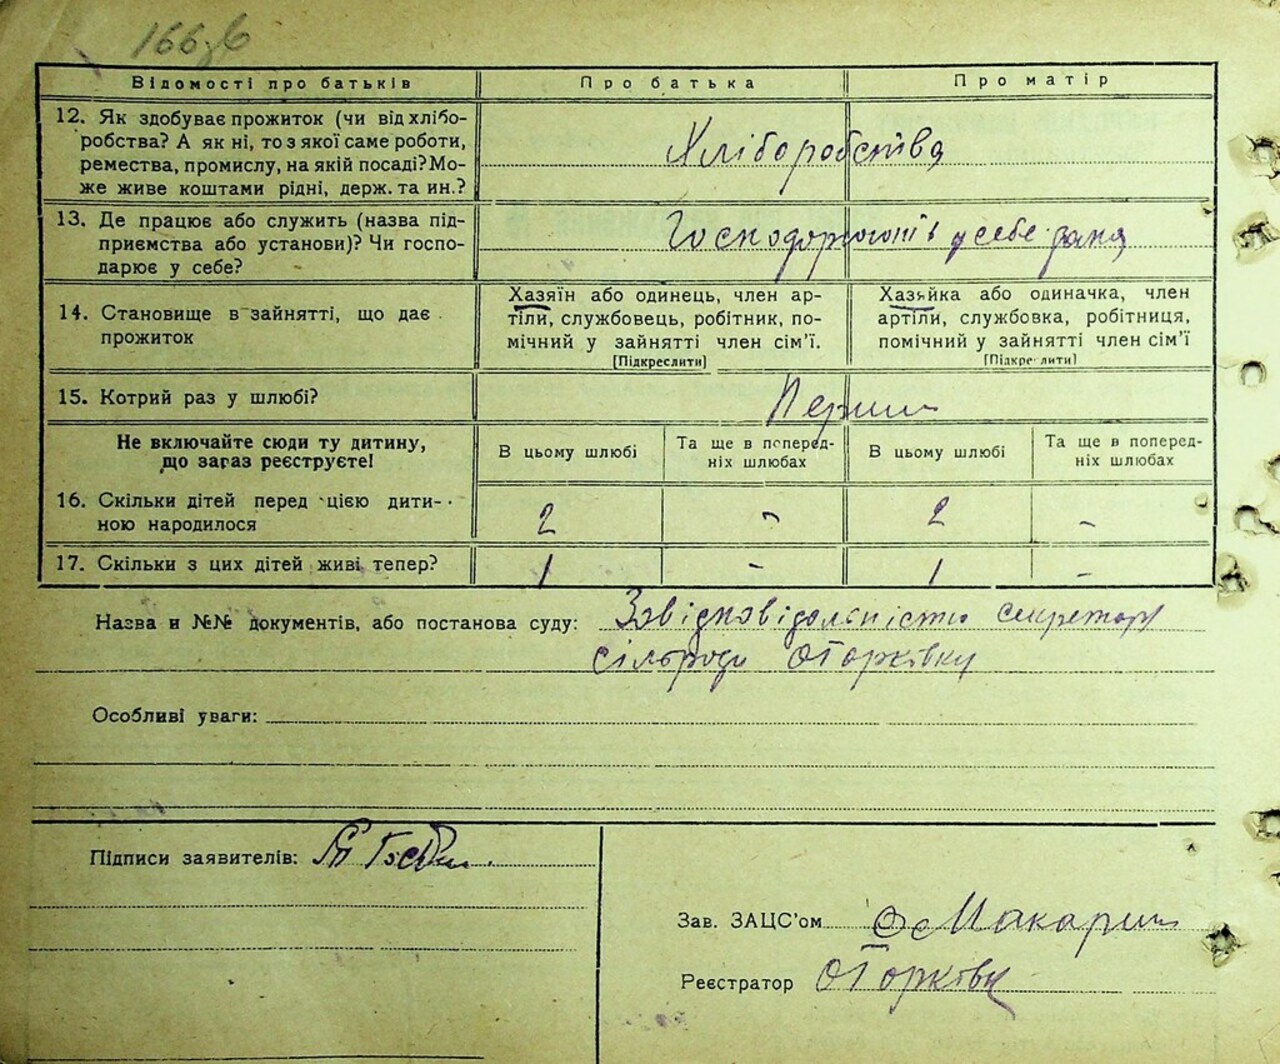 166зв
Відомості про батьків Про батька Про матір
12. Як здобуває прожиток (чи від хлібо-
робства? А як ні, то з якої саме роботи,
ремества, промислу, на якій посаді? Мо-
же живе коштами рідні, держ. та ин.?
Хліборобства
13. Де працює або служить (назва під-
приємства або установи)? Чи госпо-
дарює у себе?
у себе
14. Становище в зайнятті, що дає
прожиток
Хазяїн або одинець, член ар-
тіли, службовець, робітник, по-
мічний у зайнятті член сім'ї.
[Підкреслити]
Хазяйка або одиначка, член
артіли, службовка, робітниця,
помічний у зайнятті член сім'ї
[Підкреслити]
15. Котрий раз у шлюбі?
Перший
Не включайте сюди ту дитину,
що зараз реєструєте!
В цьому шлюбі
Та ще в поперед-
ніх шлюбах
В цьому шлюбі
Та ще в поперед-
ніх шлюбах
16. Скільки дітей перед цією дити-
ною народилося
2 - 2 -
17. Скільки з цих дітей живі тепер? 1 - 1 -
Назва и №№ документів, або постанова суду: За відповідальністю секретаря
сільради
Особливі уваги:
Підписи заявителів:
Зав. ЗАЦС'ом
Реєстратор